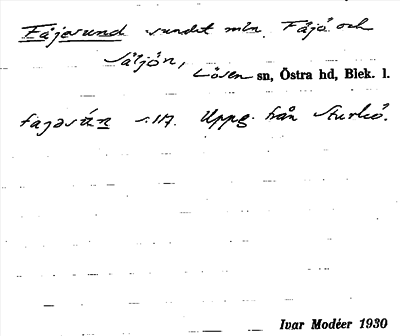 Fäjesund sundet mln. Fäjö och
Säljön,
Lösen sn, Östra hd, Blek. l.
s. 117. Uppg. från Sturkö.
Ivar Modéer 1930